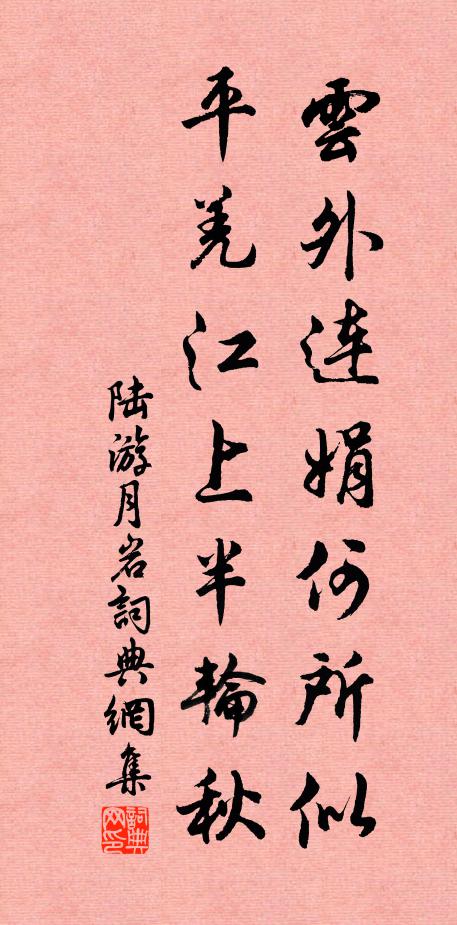 雲外連娟何所似
平羌江上半輪秋
陆游月岩詞典網集
詞典网印